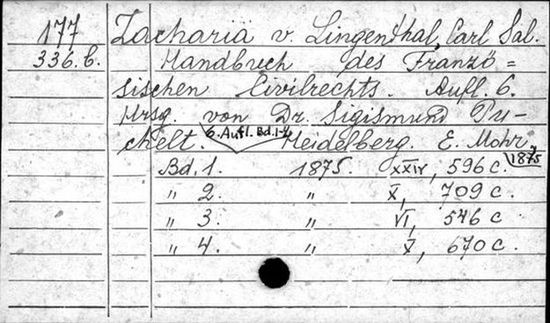 177 Zachariä v. Lingenthal, Carl Sal.
336.b. Handbuch des Französ=
sischen Civilrechts. Aufl. 6.
Hrsg. von Dr. Sigismund Pu-
chelt. 6. Aufl. Bd. 1-4 Heidelberg. E. Mohr, 1875
Bd. 1. 1875. XXIV, 596 c.
" 2. " X, 709 c.
" 3. " VI, 546 c
" 4. " X, 670 c.